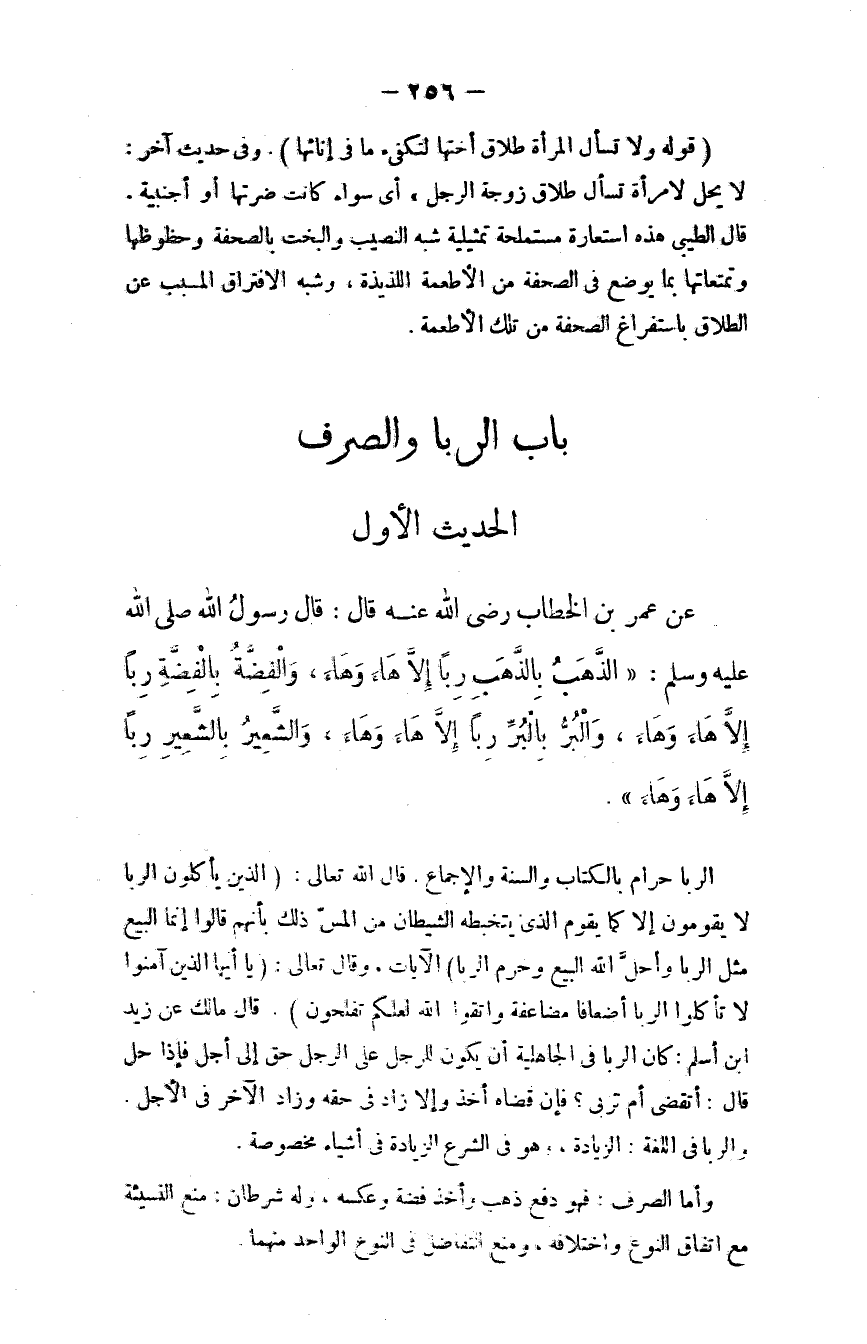 — ٢٥٦ —
( قوله ولا تسأل المرأة طلاق أختها لتكفىء ما فى إنائها ) . وفى حديث آخر :
لا يحل لامرأة تسأل طلاق زوجة الرجل ، أى سواء كانت ضرتها أو أجنبية .
قال الطيبى هذه استعارة مستملحة تمثيلية شبه النصيب والبخت بالصحفة وحظوظها
وتمتعاتها بما يوضع فى الصحفة من الأطعمة اللذيذة ، وشبه الافتراق المسبب عن
الطلاق باستفراغ الصحفة من تلك الأطعمة .
باب الربا والصرف
الحديث الأول
عن عمر بن الخطاب رضى الله عنه قال : قال رسولُ الله صلى الله
عليه وسلم : « الذَّهَبُ بِالذَّهَبِ رِبًا إِلاَّ هَاءَ وَهَاءَ ، وَالْفِضَّةُ بِالْفِضَّةِ رِبًا
إِلاَّ هَاءَ وَهَاءَ ، وَالْبُرُّ بِالْبُرِّ رِبًا إِلاَّ هَاءَ وَهَاءَ ، وَالشَّعِيرُ بِالشَّعِيرِ رِبًا
إِلاَّ هَاءَ وَهَاءَ » .
الربا حرام بالكتاب والسنة والإجماع . قال الله تعالى : ( الذين يأكلون الربا
لا يقومون إلا كما يقوم الذى يتخبطه الشيطان من المسّ ذلك بأنهم قالوا إنما البيع
مثل الربا وأحلَّ الله البيع وحرم الربا) الآيات . وقال تعالى : ( يا أيها الذين آمنوا
لا تأكلوا الربا أضعافا مضاعفة واتقوا الله لعلكم تفلحون ) . قال مالك عن زيد
ابن أسلم : كان الربا فى الجاهلية أن يكون للرجل على الرجل حق إلى أجل فإذا حل
قال : أتقضى أم تربى ؟ فإن قضاه أخذ وإلا زاد فى حقه وزاد الآخر فى الأجل .
والربا فى اللغة : الزيادة ، وهو فى الشرع الزيادة فى أشياء مخصوصة .
وأما الصرف : فهو دفع ذهب وأخذ فضة وعكسه ، وله شرطان : منع النسيئة
مع اتفاق النوع واختلافه ، ومنع التفاضل فى النوع الواحد منهما .